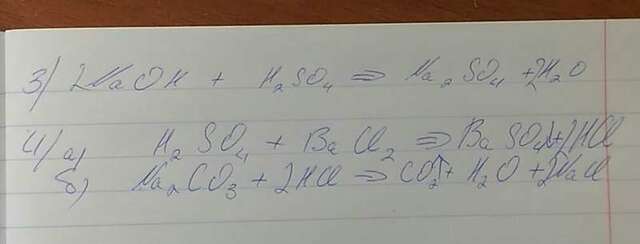 3) 2NaOH + H₂SO₄ ⇒ Na₂SO₄ + 2H₂O
4) а) H₂SO₄ + BaCl₂ ⇒ BaSO₄↓ + 2HCl
б) Na₂CO₃ + 2HCl ⇒ CO₂↑ + H₂O + 2NaCl